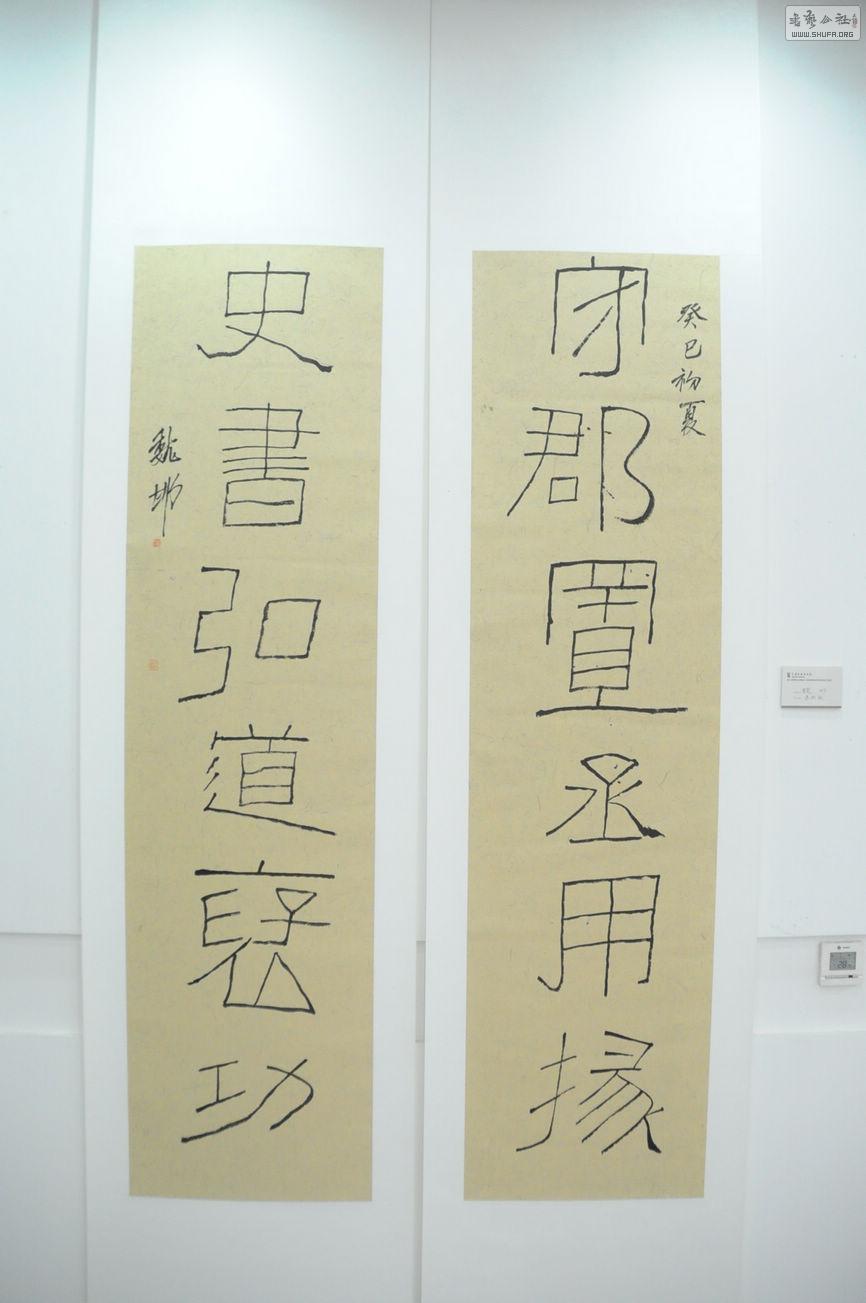 癸巳初夏
守郡置丞用掾
史書弘道褒功
魏坤
書藝公社
WWW.SHUFA.ORG
28